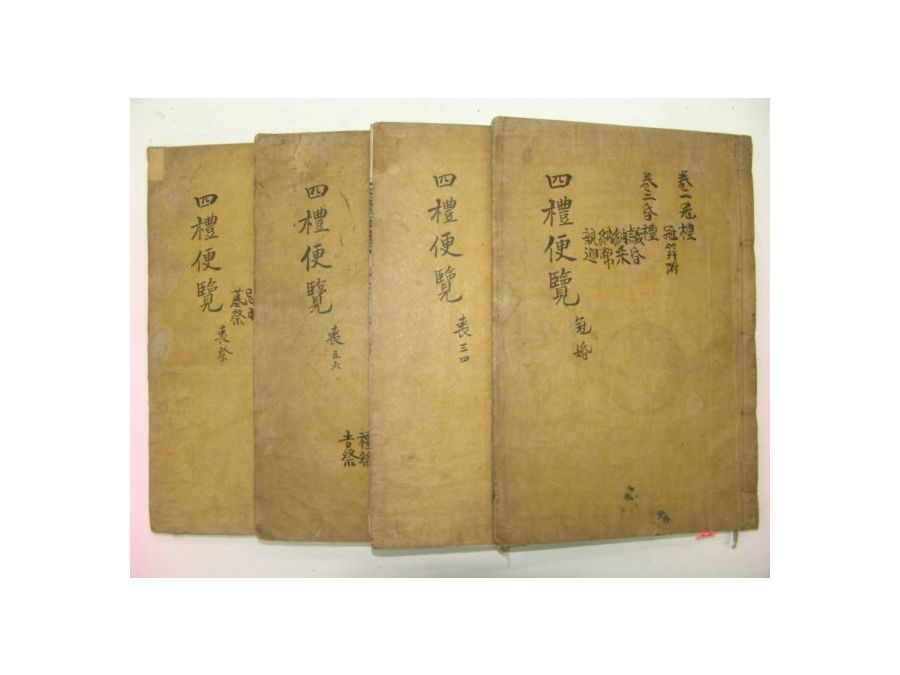 卷二冠禮
冠笄附
卷三昏禮
議昏
納采
納幣
親迎
四禮便覽
冠婚
四禮便覽
喪三四
四禮便覽
喪五六
禫祭
吉祭
四禮便覽
喪祭
墓祭